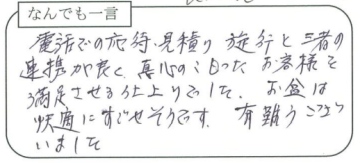 なんでも一言
電話での応待・見積り 施行と三者の
連携が良く、真心のこもった お客様を
満足させる仕上りでした。 お盆は
快適にすごせそうです。 有難うござ
いました